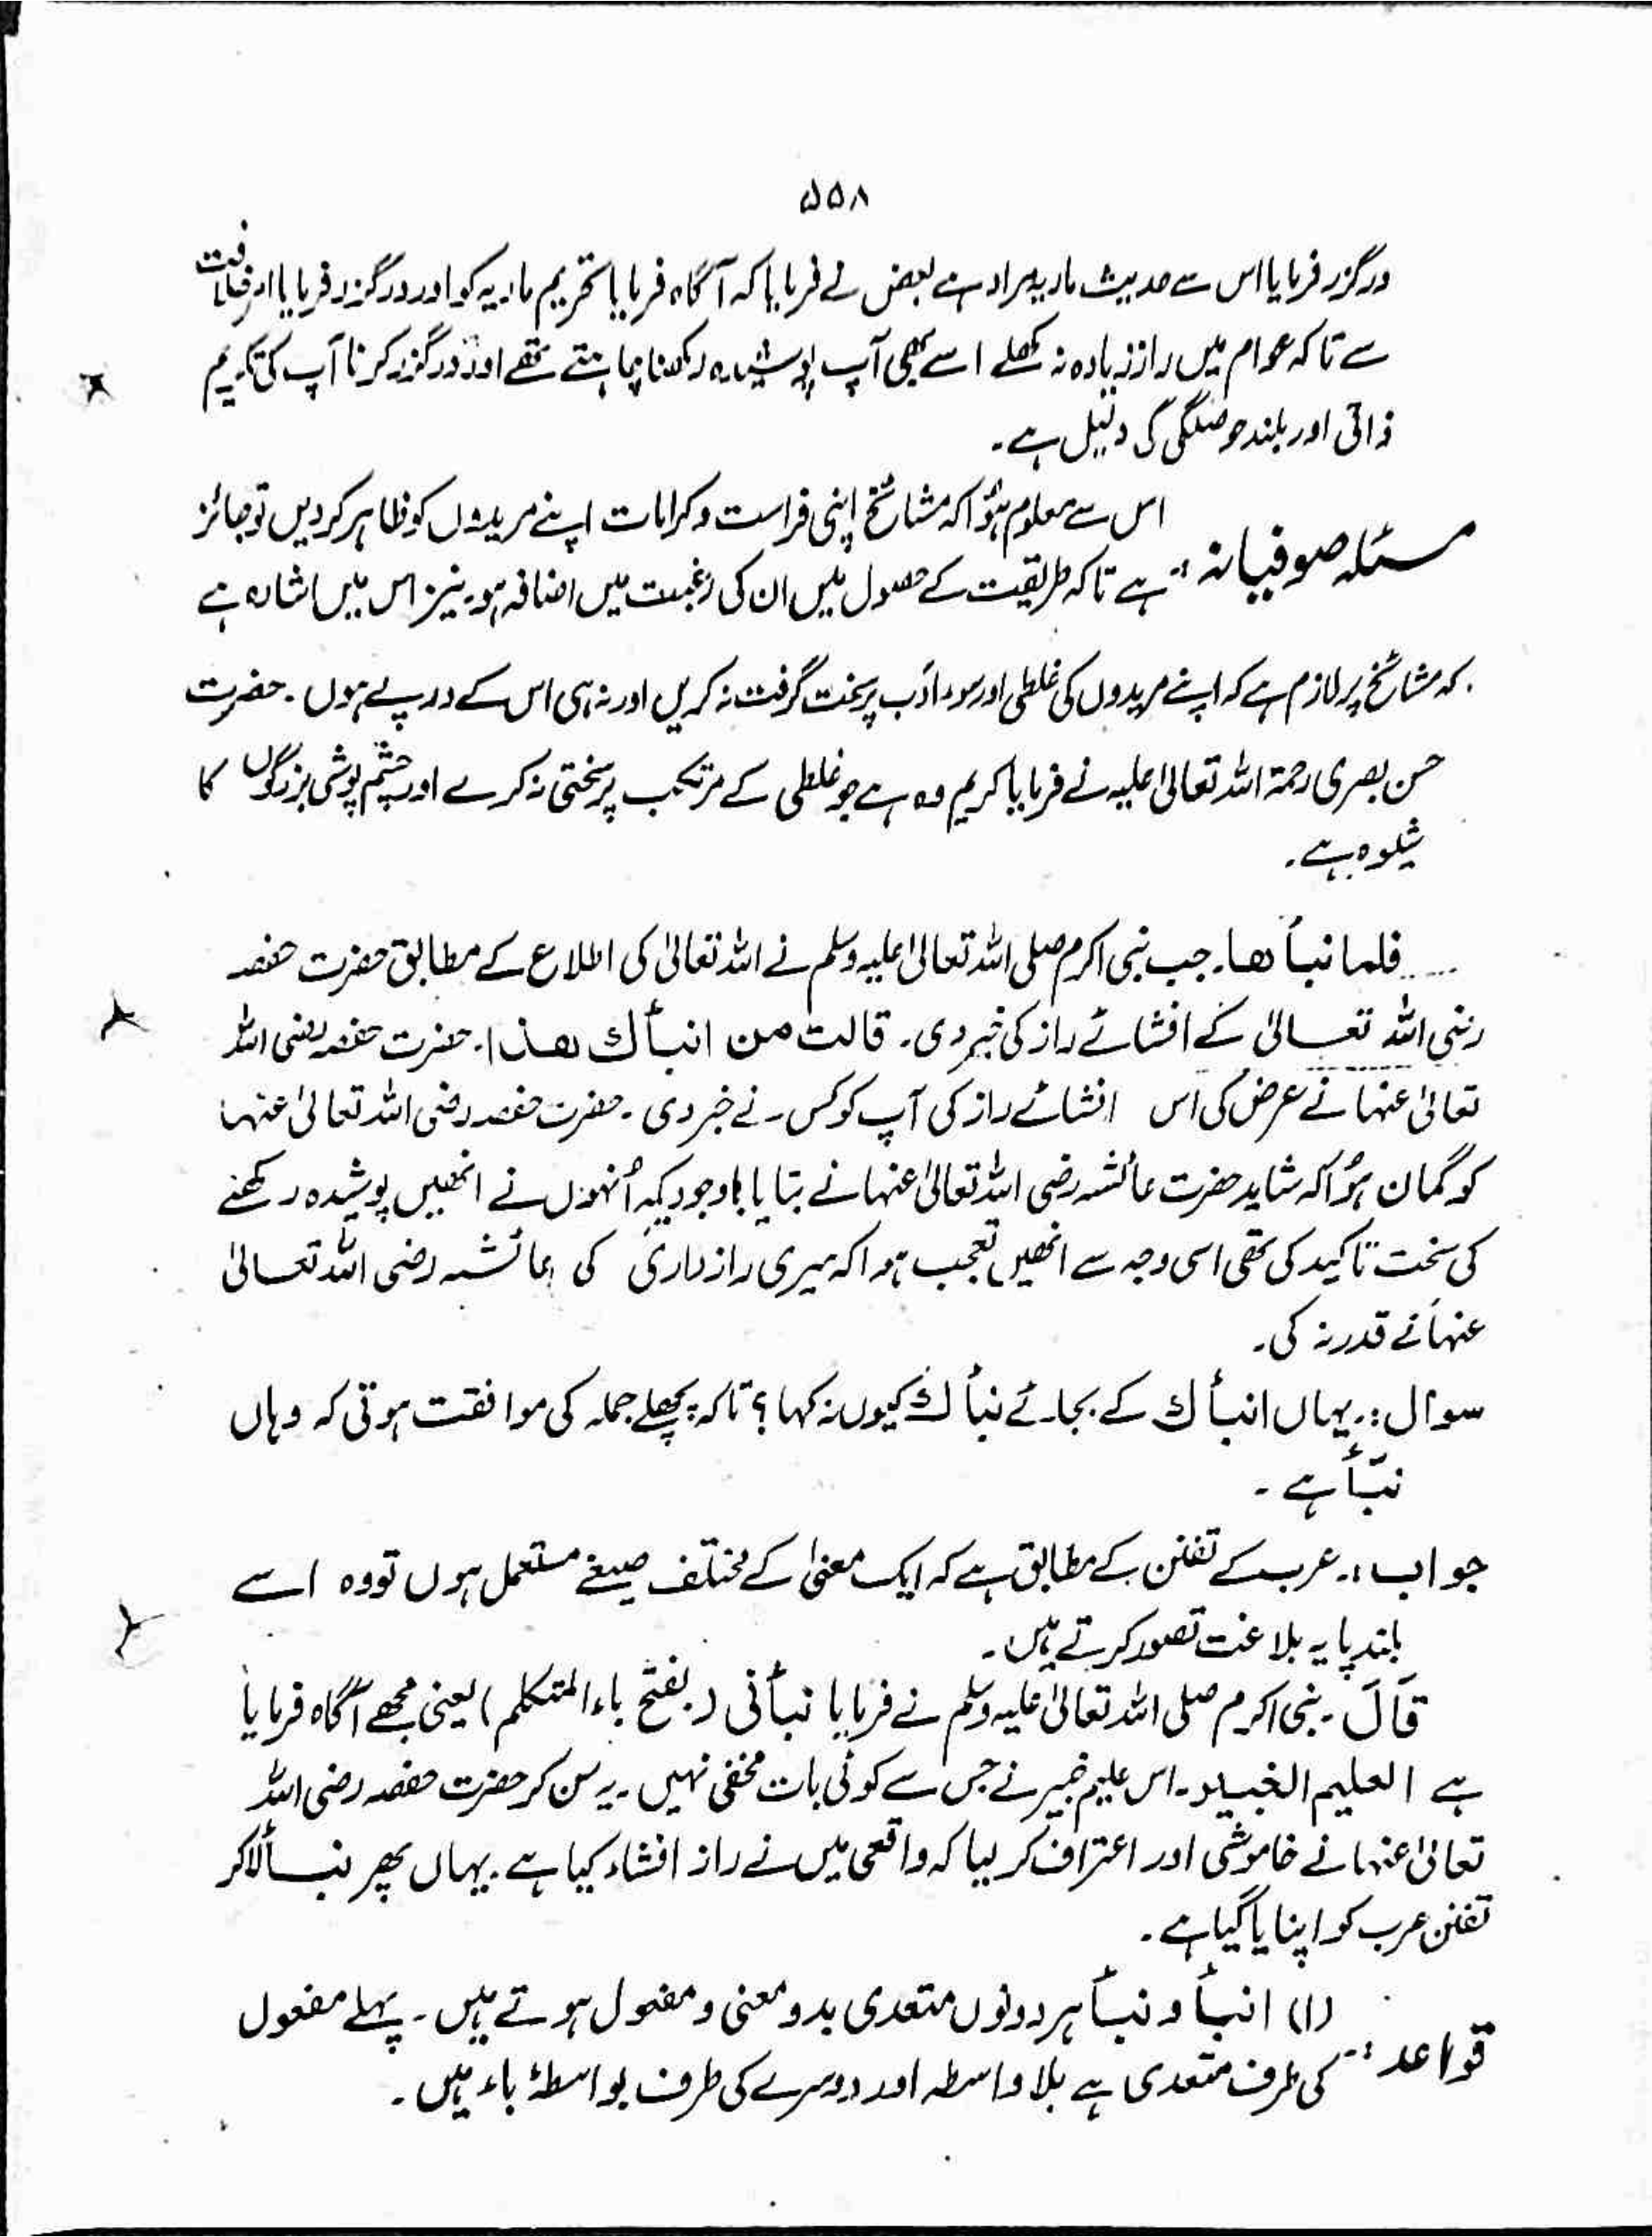 ۵۵۸
درگزر فرمایا اس سے حدیث ماریہ مراد ہے بعض نے فرمایا کہ آگاہ فرمایا تحریم ماریہ کو اور درگزر فرمایا امر خلافت
سے تاکہ عوام میں راز زیادہ نہ کھلے اسے بھی آپ پوشیدہ رکھنا چاہتے تھے اور درگزر کرنا آپ کی تکریم
ذاتی اور بلند حوصلگی کی دلیل ہے۔
اس سے معلوم ہؤا کہ مشائخ اپنی فراست و کرامات اپنے مریدوں کو ظاہر کر دیں تو جائز
مسئلہ صوفیانہ :۔ ہے تاکہ طریقت کے حصول میں ان کی رغبت میں اضافہ ہو۔ نیز اس میں اشارہ ہے
کہ مشائخ پر لازم ہے کہ اپنے مریدوں کی غلطی اور سوء ادب پر سخت گرفت نہ کریں اور نہ ہی اس کے درپے ہوں۔ حضرت
حسن بصری رحمۃ اللہ تعالیٰ علیہ نے فرمایا کریم وہ ہے جو غلطی کے مرتکب پر سختی نہ کرے اور چشم پوشی بزرگوں کا
شیوہ ہے۔
فلما نبأھا۔ جب نبی اکرم صلی اللہ تعالیٰ علیہ وسلم نے اللہ تعالیٰ کی اطلاع کے مطابق حضرت حفصہ
رضی اللہ تعالیٰ کے افشائے راز کی خبر دی۔ قالت من انبأك ھذا۔ حضرت حفصہ رضی اللہ
تعالیٰ عنہا نے عرض کی اس افشائے راز کی آپ کو کس نے خبر دی۔ حضرت حفصہ رضی اللہ تعالیٰ عنہا
کو گمان ہؤا کہ شاید حضرت عائشہ رضی اللہ تعالیٰ عنہا نے بتایا باوجودیکہ اُنہوں نے انھیں پوشیدہ رکھنے
کی سخت تاکید کی تھی اسی وجہ سے انھیں تعجب ہوا کہ میری رازداری کی عائشہ رضی اللہ تعالیٰ
عنہا نے قدر نہ کی۔
سوال :۔ یہاں انبأك کے بجائے نبأك کیوں نہ کہا؟ تاکہ پچھلے جملہ کی موافقت ہوتی کہ وہاں
نبّأ ہے۔
جواب :۔ عرب کے تفنن کے مطابق ہے کہ ایک معنیٰ کے مختلف صیغے مستعمل ہوں تو وہ اسے
بلند پایہ بلاغت تصور کرتے ہیں۔
قَالَ۔ نبی اکرم صلی اللہ تعالیٰ علیہ وسلم نے فرمایا نبأنی (بفتح یاء المتکلم) یعنی مجھے آگاہ فرمایا
ہے العلیم الخبیر۔ اس علیم خبیر نے جس سے کوئی بات مخفی نہیں۔ یہ سن کر حضرت حفصہ رضی اللہ
تعالیٰ عنہا نے خاموشی اور اعتراف کر لیا کہ واقعی میں نے راز افشاء کیا ہے۔ یہاں پھر نبأ لا کر
تفنن عرب کو اپنایا گیا ہے۔
(۱) انبأ و نبأ ہر دونوں متعدی بدو معنی و مفعول ہوتے ہیں۔ پہلے مفعول
قواعد :۔ کی طرف متعدی ہے بلا واسطہ اور دوسرے کی طرف بواسطۂ باء ہیں۔